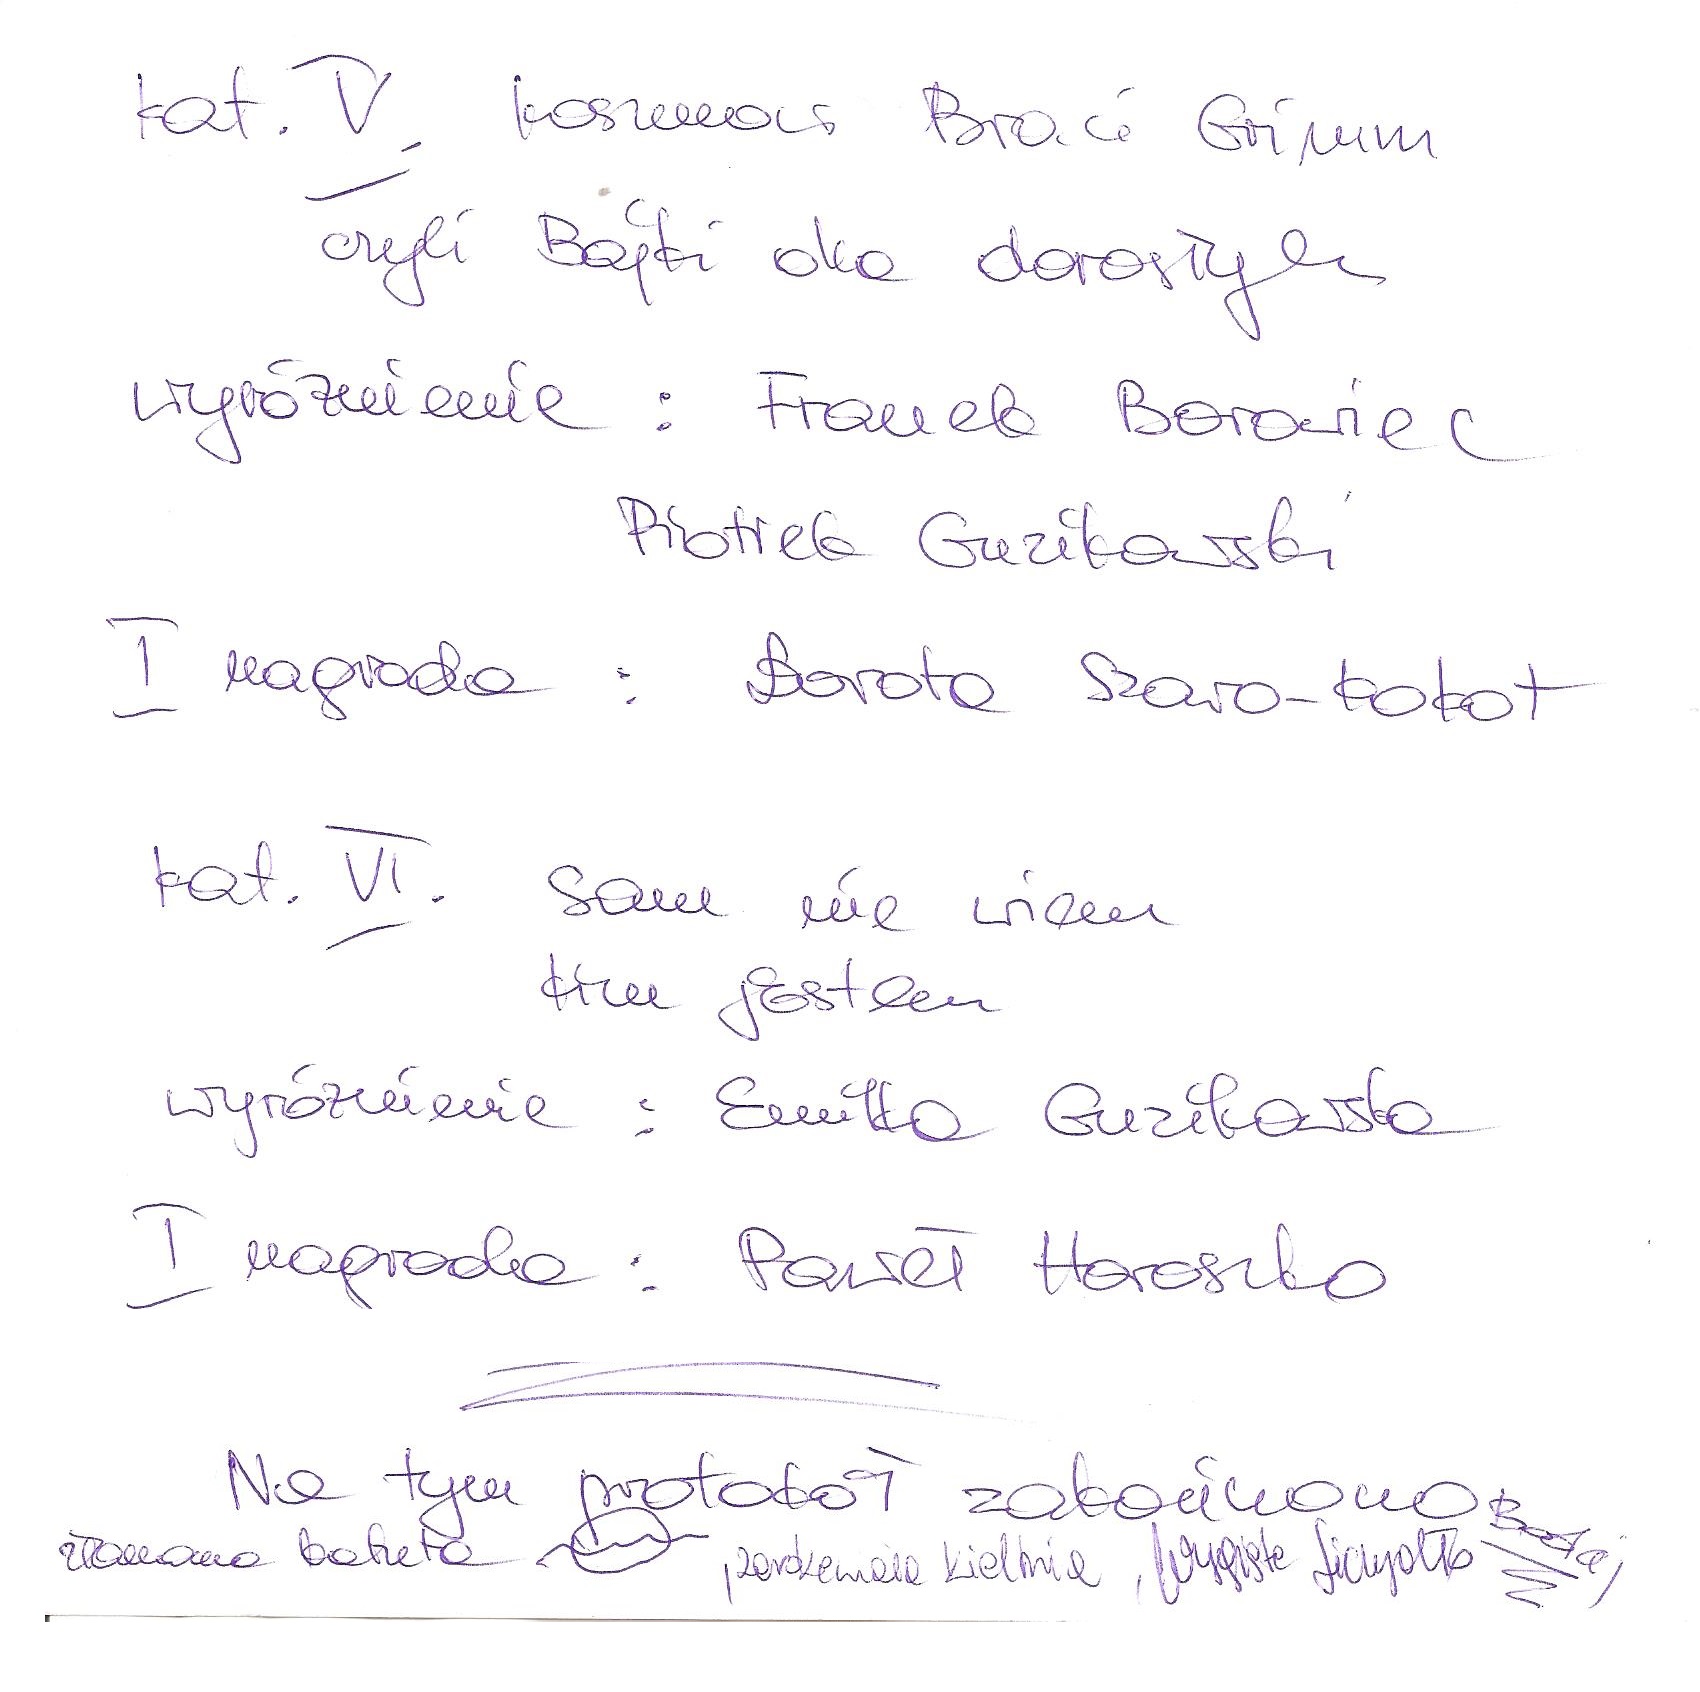 kat. V. koszmar Braci Grimm
czyli Bajki dla dorosłych
wyróżnienie : Franek Borowiec
Piotrek Guzikowski
I nagroda : Dorota Szaro-Kokot
kat. VI. Sam nie wiem
kim jestem
wyróżnienie : Emilka Guzikowska
I nagroda : Paweł Haraszko
Na tym protokół zakończono
złamana kobieta , zardzewiała kielnia , wygięte